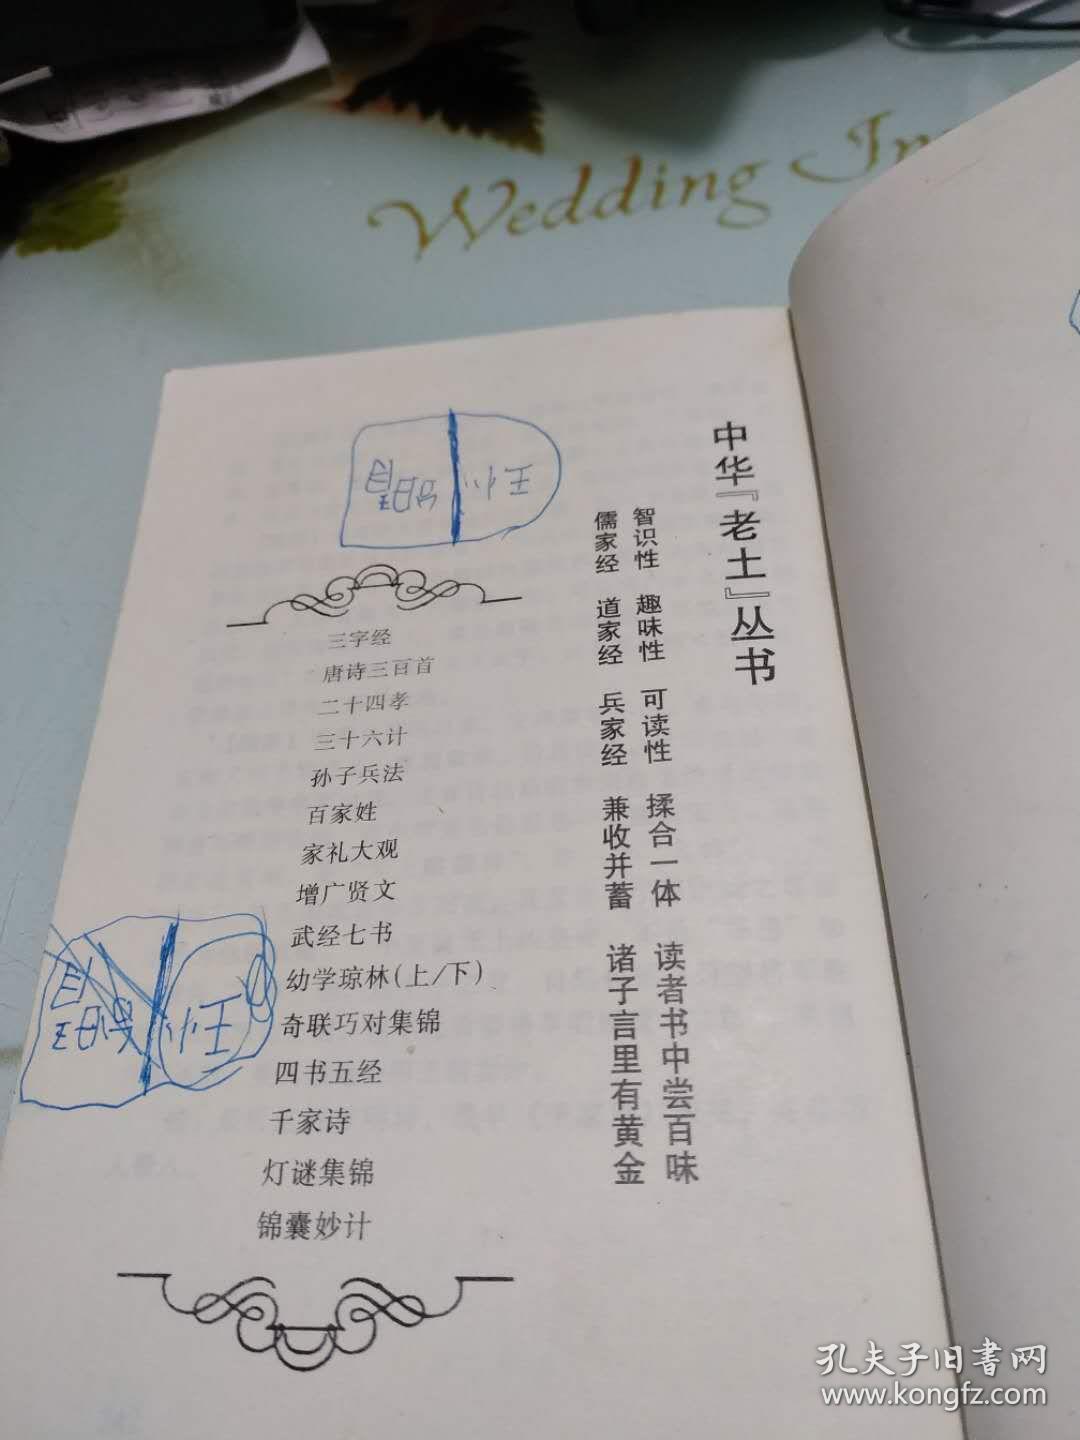 Wedding In
中华『老土』丛书
智识性 趣味性 可读性 揉合一体 读者书中尝百味
儒家经 道家经 兵家经 兼收并蓄 诸子言里有黄金
三字经
唐诗三百首
二十四孝
三十六计
孙子兵法
百家姓
家礼大观
增广贤文
武经七书
幼学琼林(上/下)
奇联巧对集锦
四书五经
千家诗
灯谜集锦
锦囊妙计
孔夫子旧書网
www.kongfz.com